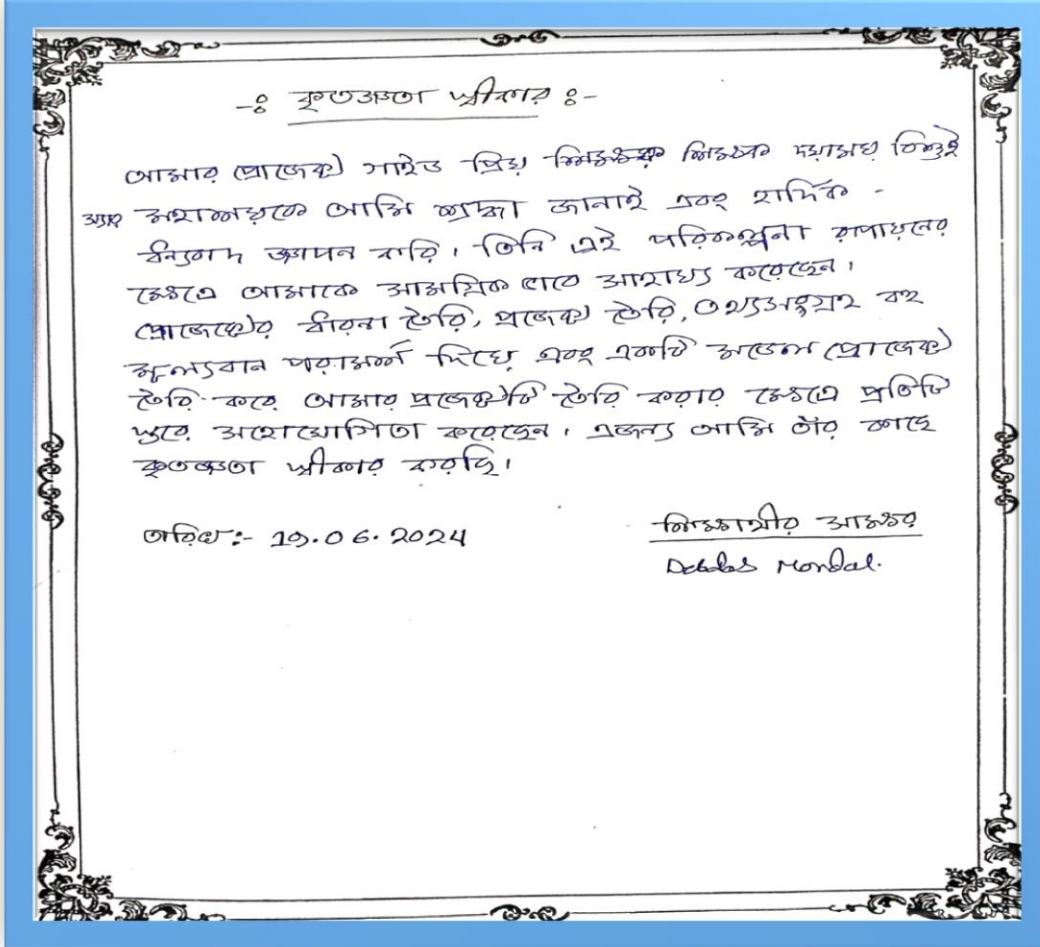 -ঃ কৃতজ্ঞতা স্বীকার ঃ-
আমার প্রোজেক্ট গাইড প্রিয় শিক্ষক দয়াময় বিশুই
মহাশয়কে আমি শ্রদ্ধা জানাই এবং হার্দিক -
ধন্যবাদ জ্ঞাপন করি। তিনি এই পরিকল্পনা রূপায়নের
ক্ষেত্রে আমাকে সামগ্রিক ভাবে সাহায্য করেছেন।
প্রোজেক্টের ধারনা তৈরি, প্রজেক্ট তৈরি, তথ্যসংগ্রহ বহু
মূল্যবান পরামর্শ দিয়ে এবং একটি মডেল প্রোজেক্ট
তৈরি করে আমার প্রজেক্টটি তৈরি করার ক্ষেত্রে প্রতিটি
স্তরে সহযোগিতা করেছেন। এজন্য আমি তাঁর কাছে
কৃতজ্ঞতা স্বীকার করছি।
তারিখ:- 19.06.2024
শিক্ষার্থীর সাক্ষর
Debdas Mondal.